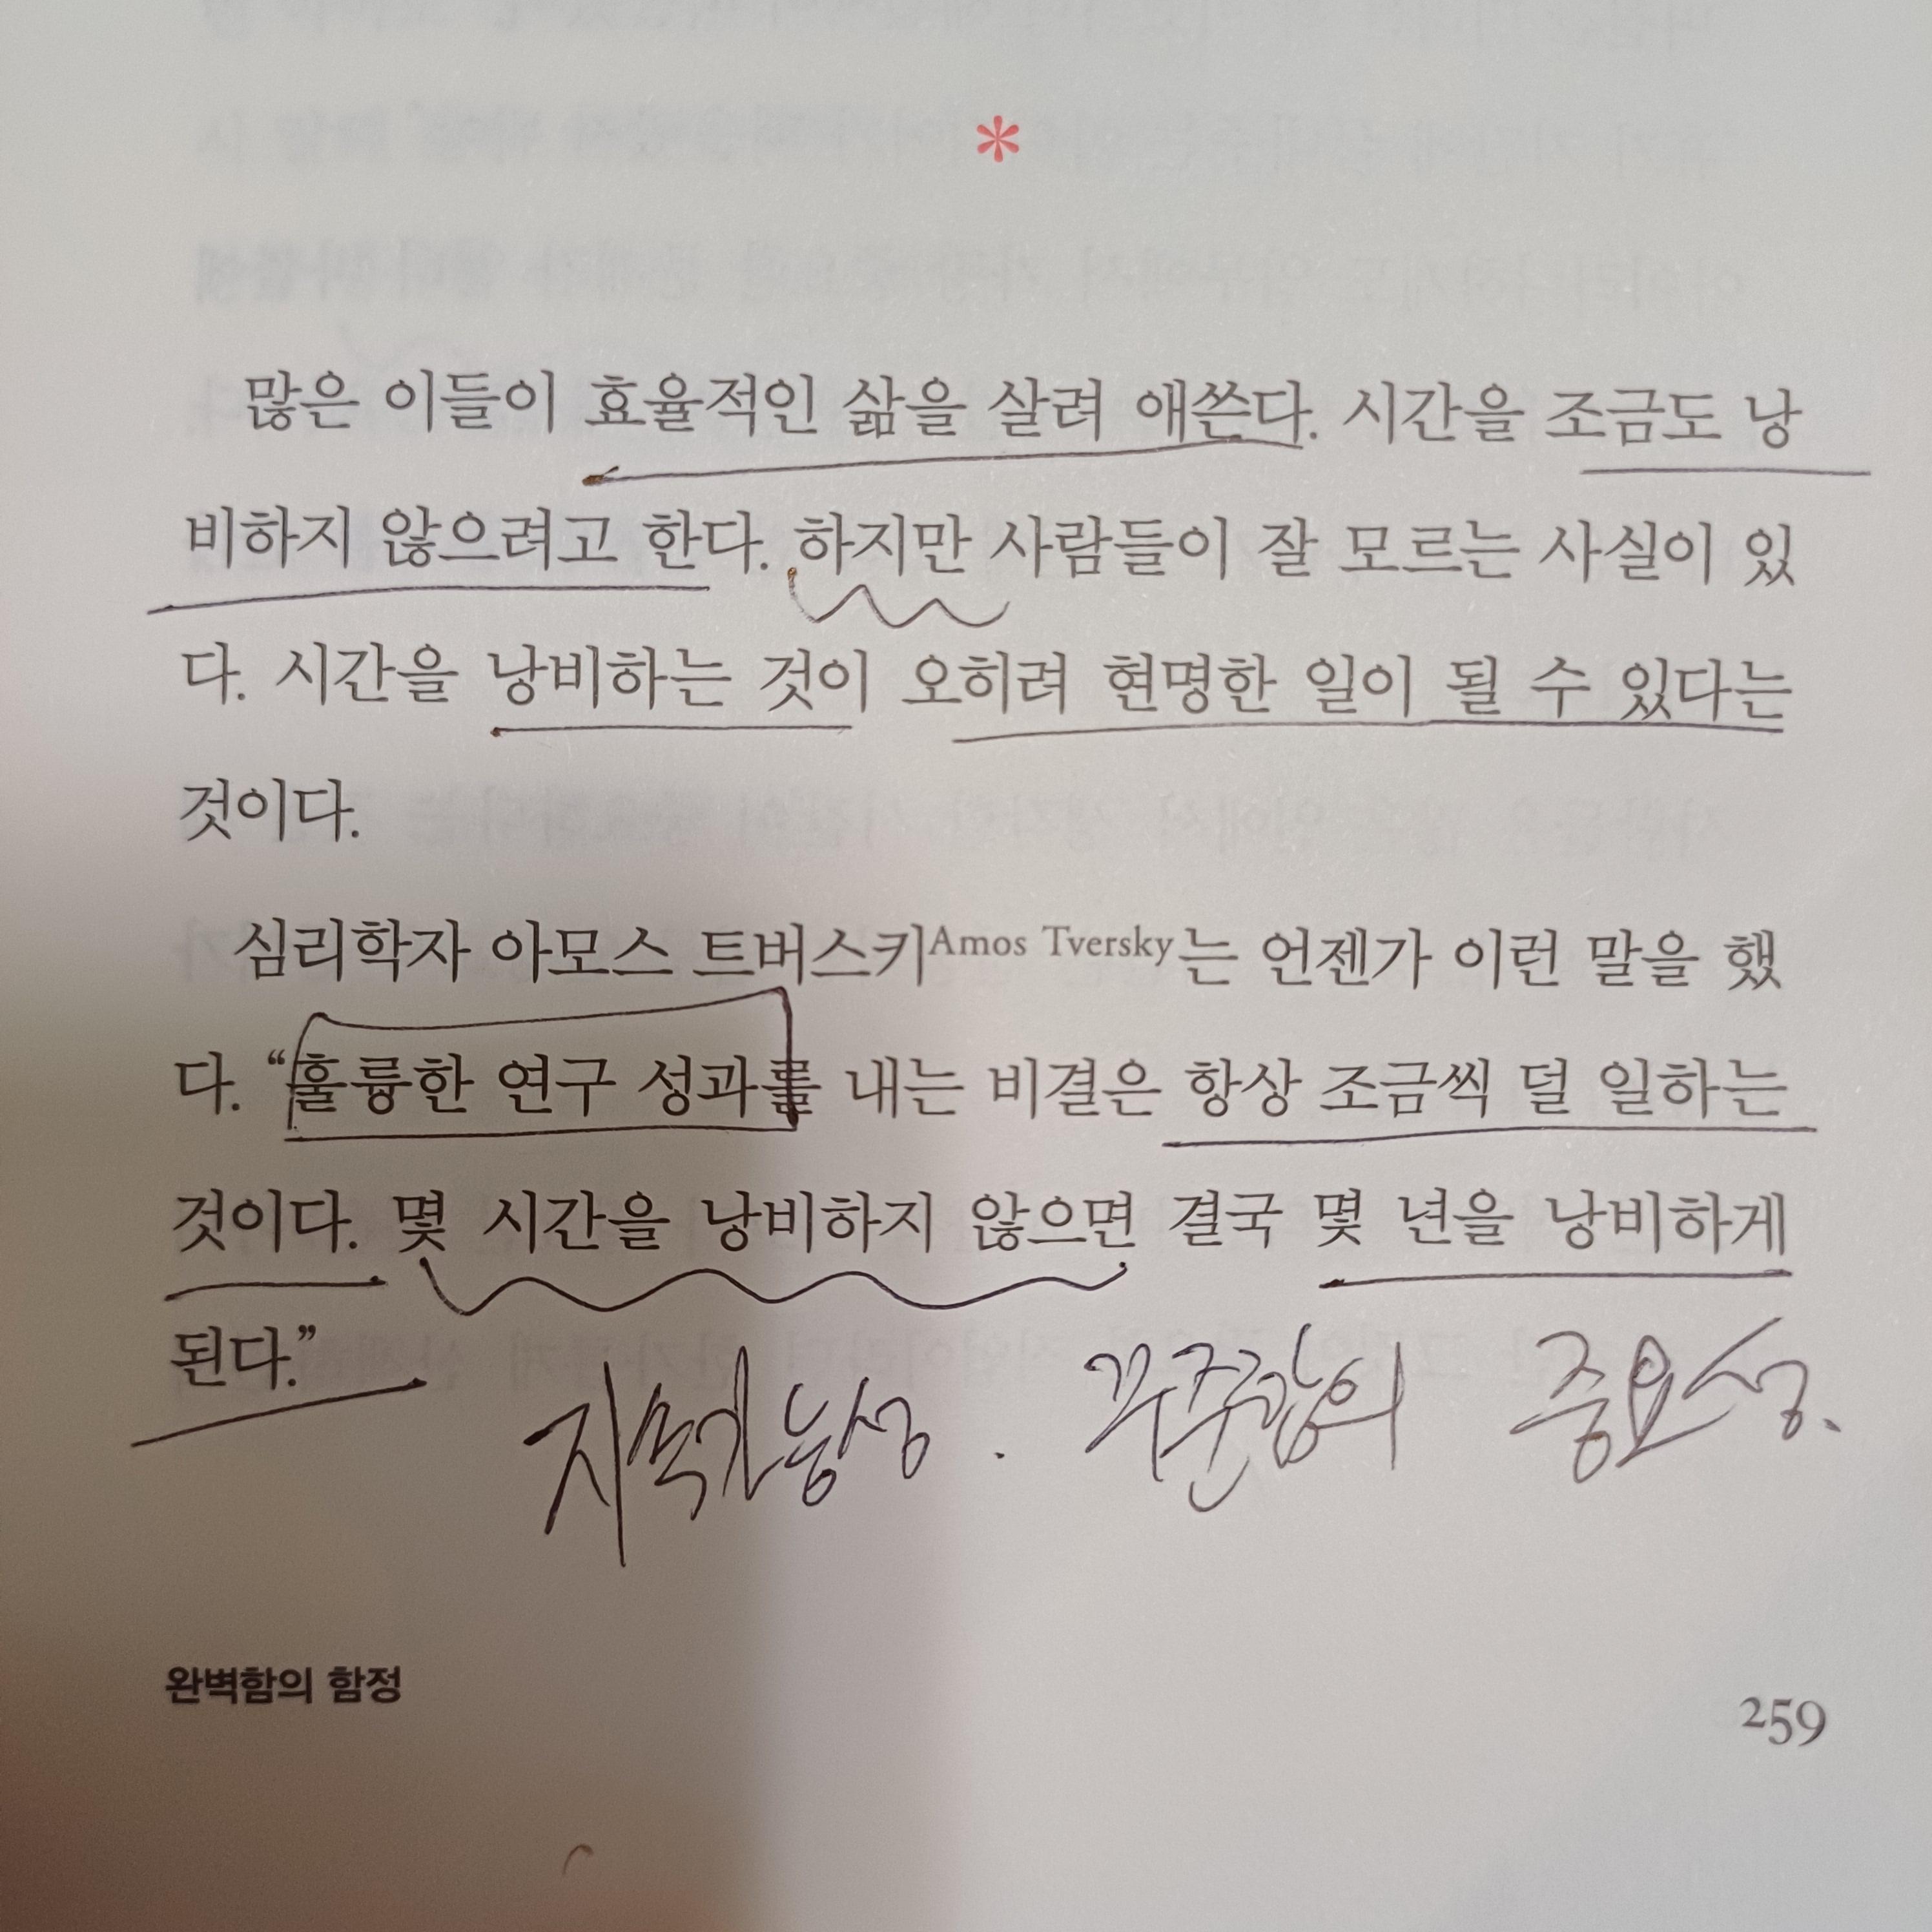 *
많은 이들이 효율적인 삶을 살려 애쓴다. 시간을 조금도 낭
비하지 않으려고 한다. 하지만 사람들이 잘 모르는 사실이 있
다. 시간을 낭비하는 것이 오히려 현명한 일이 될 수 있다는
것이다.
심리학자 아모스 트버스키Amos Tversky는 언젠가 이런 말을 했
다. “훌륭한 연구 성과를 내는 비결은 항상 조금씩 덜 일하는
것이다. 몇 시간을 낭비하지 않으면 결국 몇 년을 낭비하게
된다.”
지속가능성. 꾸준함의 중요성.
완벽함의 함정
259